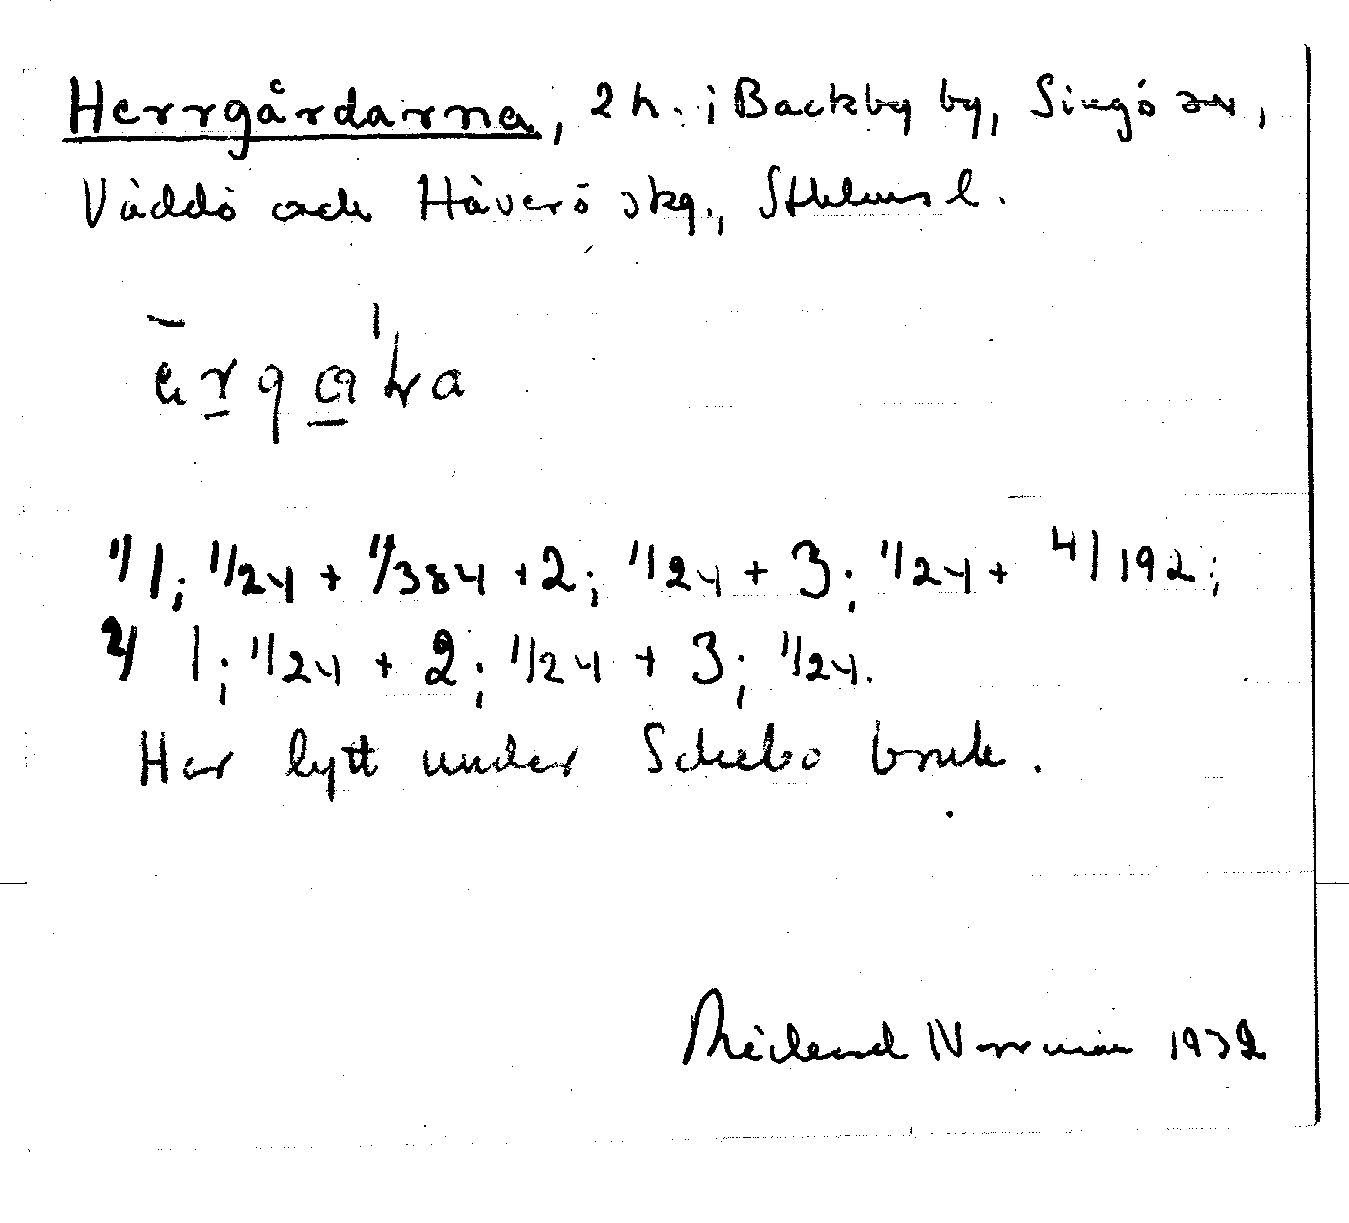 Herrgårdarna, 2 h. i Backby by, Singö sn,
Väddö och Häverö skg., Sthlms l.
1/ 1; 1/24 + 1/384 + 2; 1/24 + 3; 1/24 + 4/192;
2/ 1; 1/24 + 2; 1/24 + 3; 1/24.
Har lytt under Schebo bruk.
Rickard Norrman 1932